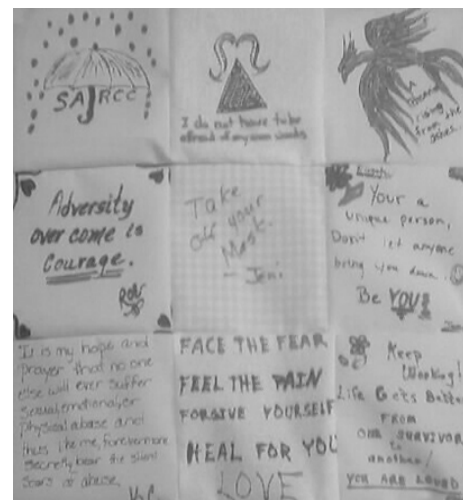 SAJRCC
I do not have to be
afraid of my own
A
rising
from the
ashes...
Adversity
over come is
Courage.
Rob
Take
off your
Mask.
- Jeni
Your a
unique person,
Don't let anyone
bring you down.
Be YOU!
It is my hope and
prayer that no one
else will ever suffer
sexual, emotional, or
physical abuse and
thus, like me, forevermore
secretly bear the silent
scars of abuse.
FACE THE FEAR
FEEL THE PAIN
FORGIVE YOURSELF
HEAL FOR YOU
LOVE
Keep
Working!
Life Gets Better
FROM
ONE SURVIVOR
to
another!
YOU ARE LOVED